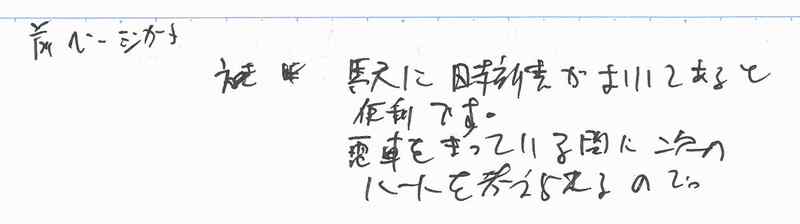 前ページ
駅に時刻表がおいてあると
便利です。
電車をまっている間に次の
ルートを考えられるので。